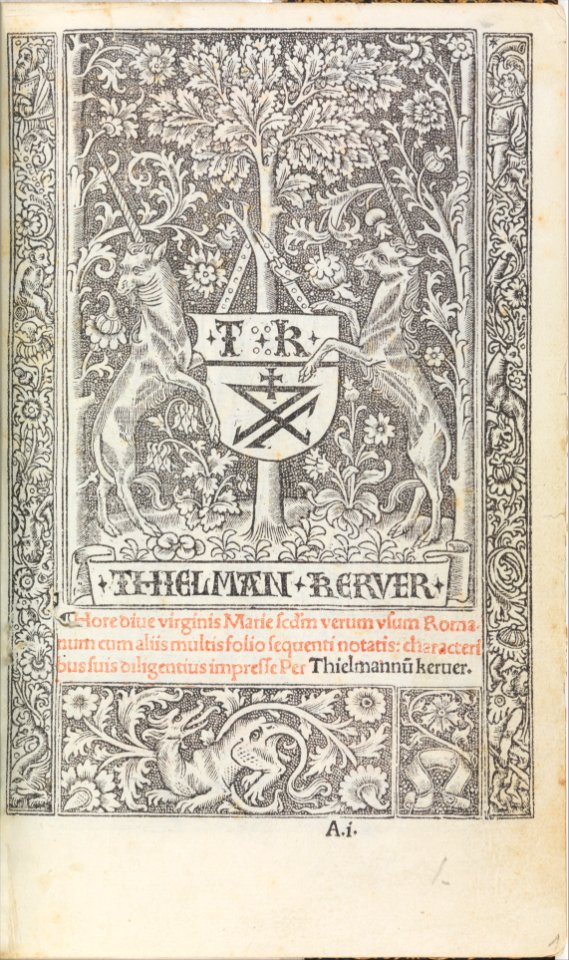 T R
THIELMAN KERVER
Hore diue virginis Marie scd̃m verum vsum Roma-
num cum aliis multis folio sequenti notatis: characteri
bus suis diligentius impresse Per Thielmannũ keruer.
A.i.